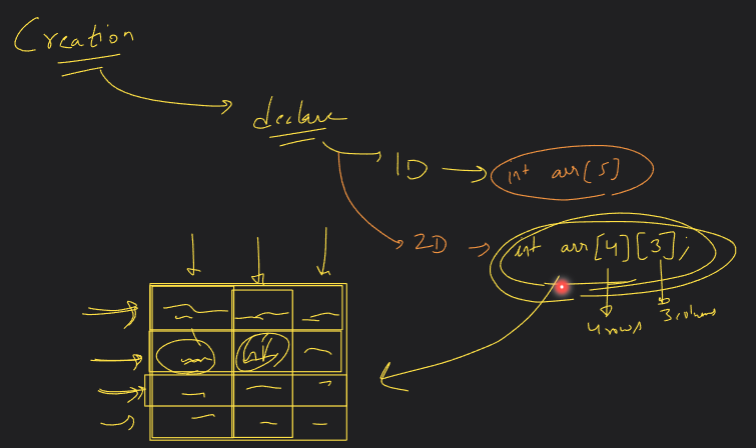 Creation
declare
1D
int arr[5]
2D
int arr[4][3];
4 rows
3 columns